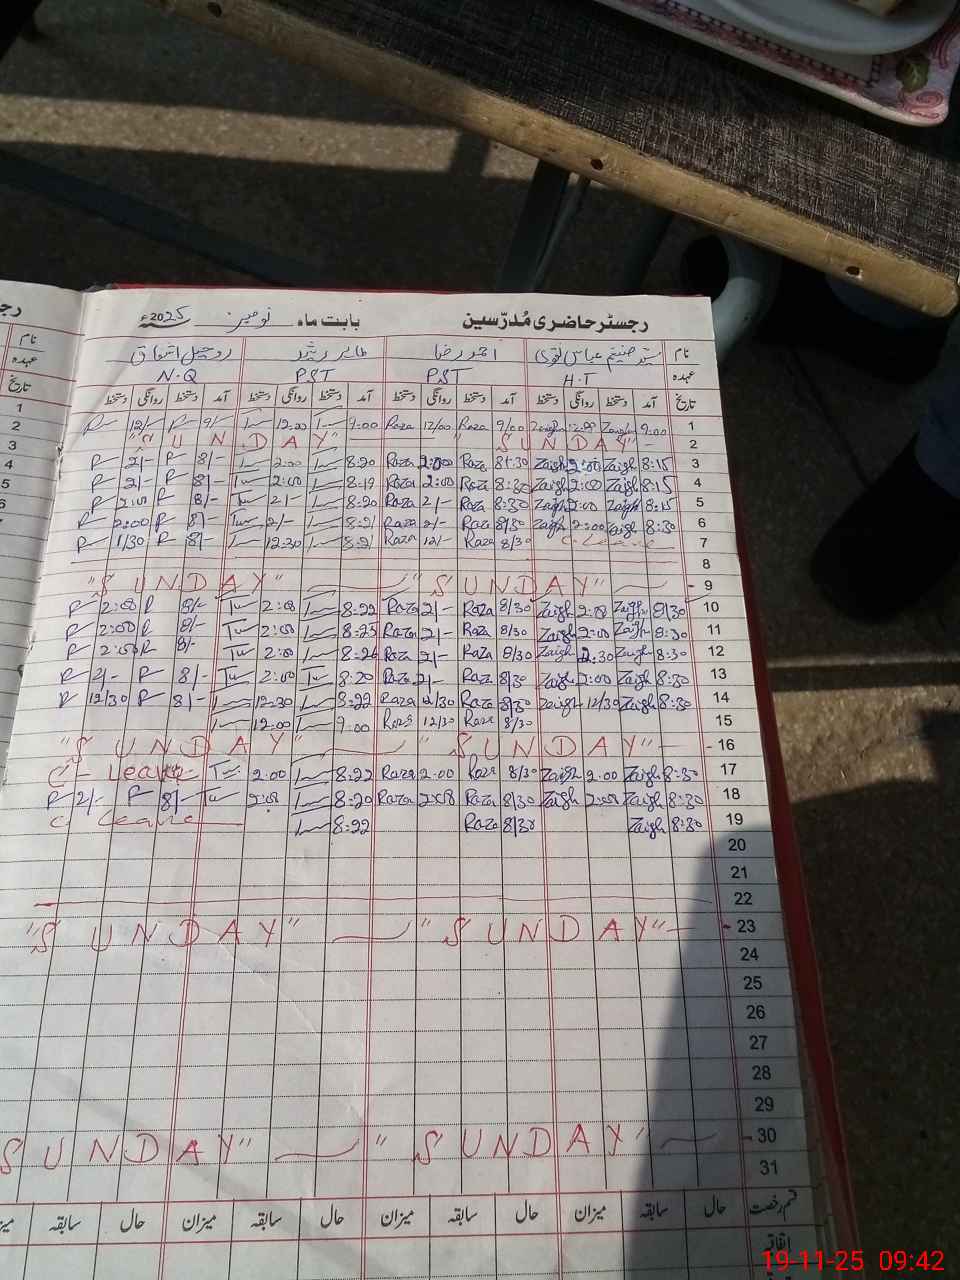 رجسٹر حاضری مُدرّسین بابت ماہ نومبر 2025ء
نام سید ضیغم عباس نقوی احمد رضا طاہر رشید روحیل اشفاق
عہدہ H.T PST PST N.Q
تاریخ آمد دستخط روانگی دستخط آمد دستخط روانگی دستخط آمد دستخط روانگی دستخط آمد دستخط روانگی دستخط
1 9:00 Zaigh 12:00 Zaigh 9/00 Raza 12/00 Raza 9:00 12:00 9/- R 12/- R
2 "SUNDAY" "SUNDAY"
3 8:15 Zaigh 2:00 Zaigh 8:30 Raza 2:00 Raza 8:20 2:00 8/- R 2/- R
4 8:15 Zaigh 2:00 Zaigh 8:30 Raza 2:00 Raza 8:19 2:00 8/- R 2/- R
5 8:15 Zaigh 2:00 Zaigh 8:30 Raza 2/- Raza 8:20 2/- 8/- R 2:00 R
6 8:30 Zaigh 2:00 Zaigh 8/30 Raza 2/- Raza 8:21 2/- 8/- R 2:00 R
7 C-Leave 8/30 Raza 12/- Raza 8:21 12:30 8/- R 1/30 R
8
9 "SUNDAY" "SUNDAY"
10 8/30 Zaigh 2:00 Zaigh 8/30 Raza 2/- Raza 8:22 2:00 8/- R 2:00 R
11 8:30 Zaigh 2:00 Zaigh 8/30 Raza 2/- Raza 8:25 2:00 8/- R 2:00 R
12 8:30 Zaigh 2:30 Zaigh 8/30 Raza 2/- Raza 2:00 8/- R 2:00 R
13 8:30 Zaigh 2:00 Zaigh 8/30 Raza 2/- Raza 8:20 2:00 8/- R 2/- R
14 8:30 Zaigh 12/30 Zaigh 8/30 Raza 12/30 Raza 8:22 12:30 8/- R 12/30 R
15 8/30 Raza 12/30 Raza 9:00 12:00
16 "SUNDAY" "SUNDAY"
17 8:30 Zaigh 2:00 Zaigh 8/30 Raza 2:00 Raza 8:22 2:00 C-Leave
18 8:30 Zaigh 2:00 Zaigh 8/30 Raza 2:00 Raza 8:20 2:00 8/- R 2/- R
19 8:30 Zaigh 8/30 Raza 8:22 C Leave
20
21
22
23 "SUNDAY" "SUNDAY"
24
25
26
27
28
29
30 "SUNDAY" "SUNDAY"
31
قسم رخصت حال سابقہ میزان حال سابقہ میزان حال سابقہ میزان حال سابقہ
اتفاقیہ
نام
عہدہ
تاریخ
1
2
3
4
5
6
19-11-25 09:42